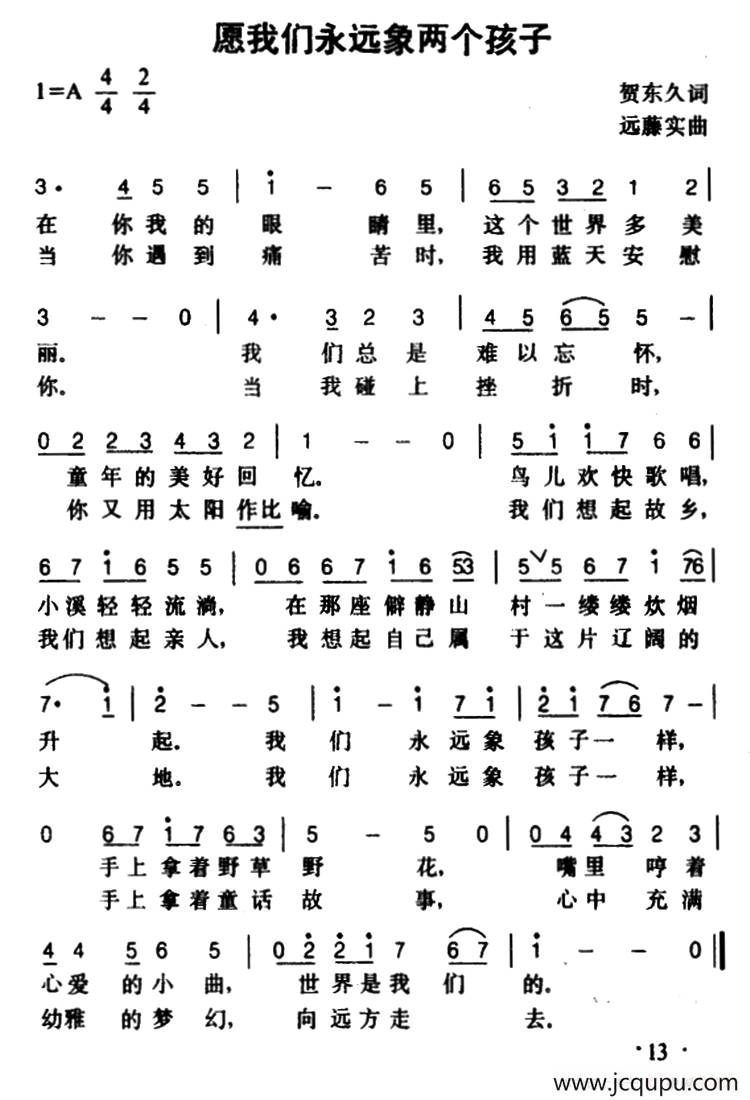 愿我们永远象两个孩子
1=A 4/4 2/4
贺东久词
远藤实曲
3· 4 5 5 | i － 6 5 | 6 5 3 2 1 2 |
在 你我的 眼 睛里, 这个世界多美
当 你遇到 痛 苦时, 我用蓝天安慰
3 － － 0 | 4· 3 2 3 | 4 5 6 5 5 － |
丽. 我 们总是 难以忘 怀,
你. 当 我碰上 挫 折 时,
0 2 2 3 4 3 2 | 1 － － 0 | 5 i i 7 6 6 |
童年的美好回 忆. 鸟儿欢快歌唱,
你又用太阳作比喻. 我们想起故乡,
6 7 i 6 5 5 | 0 6 6 7 i 6 53 | 5 ∨ 5 6 7 i 76 |
小溪轻轻流淌, 在那座僻静山 村一缕缕炊烟
我们想起亲人, 我想起自己属 于这片辽阔的
7· i | 2 － － 5 | i － i 7 i | 2 i 7 6 7 － |
升 起. 我 们 永远象 孩子一 样,
大 地. 我 们 永远象 孩子一 样,
0 6 7 i 7 6 3 | 5 － 5 0 | 0 4 4 3 2 3 |
手上拿着野草 野 花, 嘴里 哼着
手上拿着童话 故 事, 心中 充满
4 4 5 6 5 | 0 2 2 i 7 6 7 | i － － 0 ‖
心爱 的小曲, 世界是我 们 的.
幼雅 的梦幻, 向远方走 去.
·13·
www.jcqupu.com